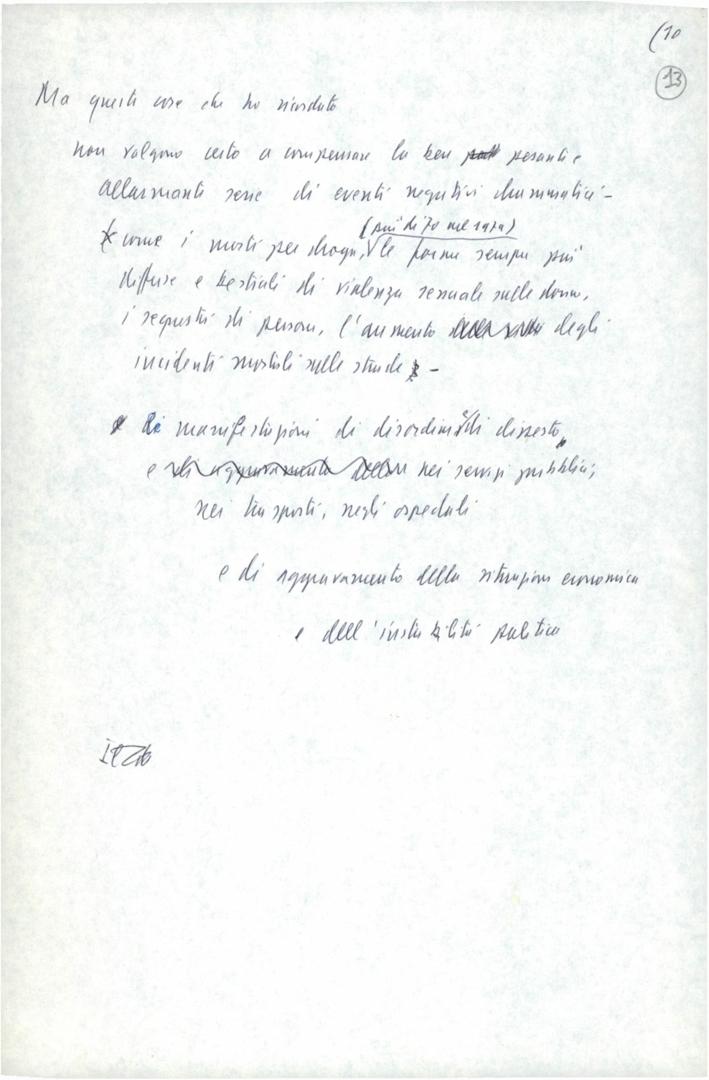 (10
13
Ma queste cose che ho ricordato
non valgono certo a compensare la ben pesante e
allarmante serie di eventi negativi drammatici –
(più di 70 nel 1979)
come i morti per droga, le forme sempre più
diffuse e bestiali di violenza sessuale sulle donne,
i sequestri di persona, l'aumento degli
incidenti mortali sulle strade –
di manifestazioni di disordine e di dissesto
e nei servizi pubblici,
nei trasporti, negli ospedali
e di aggravamento della situazione economica
e dell'instabilità politica